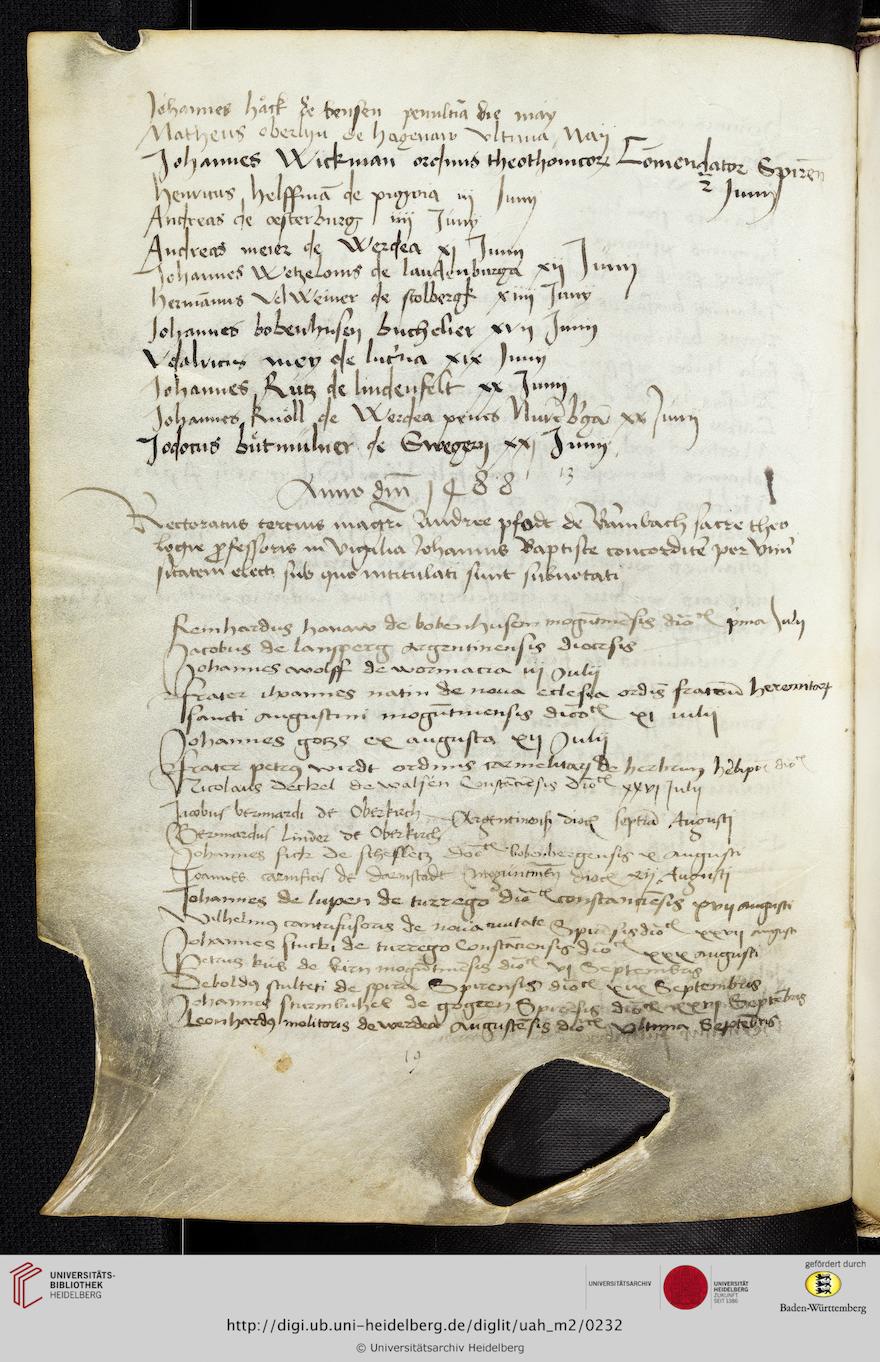 Johannes hack de bensen penultīa die may
Matheus oberlyn de hagenaw ultima Maij
Johannes Wickman ordinis theothonicorꝝ Comendator Spiren̄
2 Junij
Henricus helffman de iij Junij
Andreas de oesterburg iiij Junij
Andreas meier de Werdea xj Junij
Johannes Wetzelonis de laudenburga xij Junij
Hermanus de stolbergk xiiij Junij
Johannes bobenhusen buchelier xvij Junij
Udalricus mey de lucīna xix Junij
Johannes Rutz de lindenfelt xx Junij
Johannes knöll de Werdea penes Nurēb'gā xx Junij
Jodocus butmulner de Swegerṇ xxj Junij
13
Anno dm̄ 1488
Rectoratus tercius magr̄i Andree pfadt de Bambach sacre theo
logie ꝓfessoris in vigilia Johannis Baptiste concordite' per Univ'
sitatem electi sub quo intitulati sunt subnotati
Reinhardus hanaw de bobenhusen mogūtinēsis dioc̄ p'ma Julij
Jacobus de lansperg argentinensis diocesis
Johannes wolff de wormacia iij Julij
frater ioannes natin de noua eclesia ordis̄ fratrum heremitarꝝ
sancti augustini mogūtinensis dioc̄ xi iulij
Johannes gotzs ex augusta xij Julij
frater petrus wirdt ordinis carmelitarꝝ de herbip̄ dioc̄
Nicolaus deckel de walsen Constāciēsis dioc̄ xxvj Julij
Jacobus bernnardi de Oberkirch
Argentineñ dioc̄ septīa Augusti
Bernnardus linder de Oberkirch
Johannes fick de scheflētz dioc̄ bobenbergensis x Augusti
Joannes carnificis de darmstadt Moguntineñ dioc̄ xij Augusti
Johannes de lupen de turrego dioc̄ constanciēsis xvij augusti
Wilhelmus cantrifusoris de noua ciuitate Spirēsis dioc̄ xxvij augusti
Johannes stucki de turrego Constāciensis dioc̄ xxx augusti
Petrus kub de kirn mogūtinēsis dioc̄ vj Septembris
Deboldus sculteti de spira Spirensis dioc̄ xix Septembris
Johannes sturmbuhel de gogren Spirēsis dioc̄ xxvj Septēbris
Leonhardus molitoris de werdea Augustēsis dioc̄ ultima Septēbris
19
UNIVERSITÄTS-
BIBLIOTHEK
HEIDELBERG
UNIVERSITÄTSARCHIV
UNIVERSITÄT
HEIDELBERG
ZUKUNFT
SEIT 1386
gefördert durch
Baden-Württemberg
http://digi.ub.uni-heidelberg.de/diglit/uah_m2/0232
© Universitätsarchiv Heidelberg